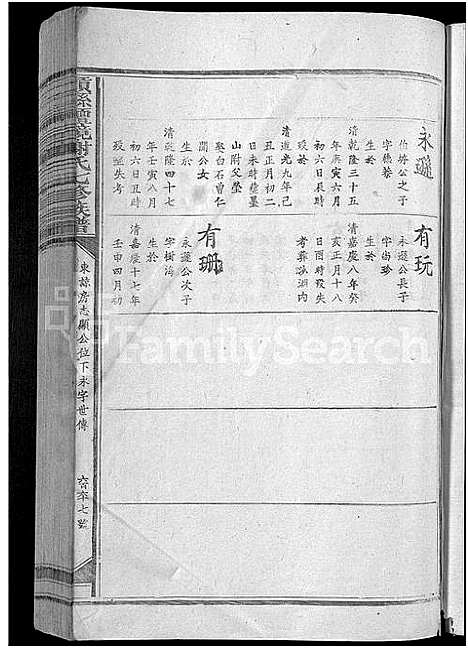 永遜
伯榜公之子
字德黎
生於
清乾隆三十五
年庚寅六月
初六日辰時
歿於
清道光九年己
丑正月初二
日未時葬墨
山附父塋
娶白石曹仁
聞公女
生於
清乾隆四十七
年壬寅八月
初六日丑時
歿葬失考
有玩
永遜公長子
字尚珍
生於
清嘉慶八年癸
亥正月十八
日酉時歿失
考葬湖內
有珊
永遜公次子
字樹海
生於
清嘉慶十七年
壬申四月初
氏七修族譜
東諒房志顯公位下永字世傳
FamilySearch